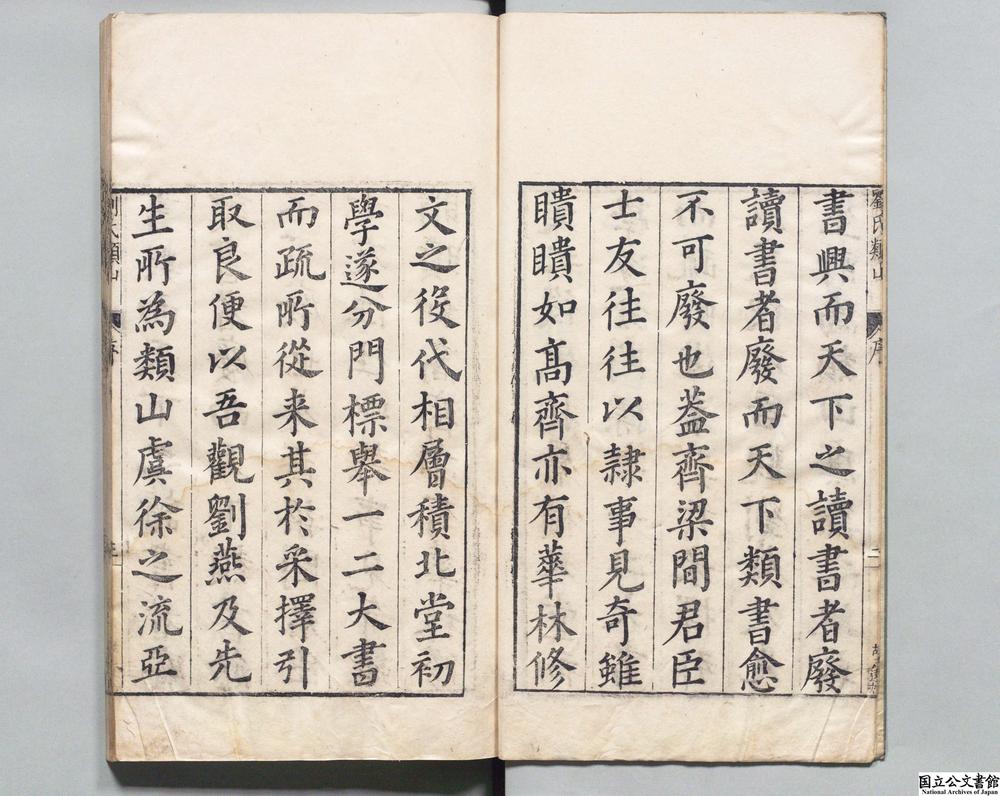 書興而天下之讀書者廢
讀書者廢而天下類書愈
不可廢也蓋齊梁間君臣
士友往往以隸事見奇雖
瞶瞶如高齊亦有華林修
文之役代相層積北堂初
學遂分門標舉一二大書
而疏所從来其於采擇引
取良便以吾觀劉燕及先
生所為類山虞徐之流亞
劉氏類山
序
二
国立公文書館
National Archives of Japan